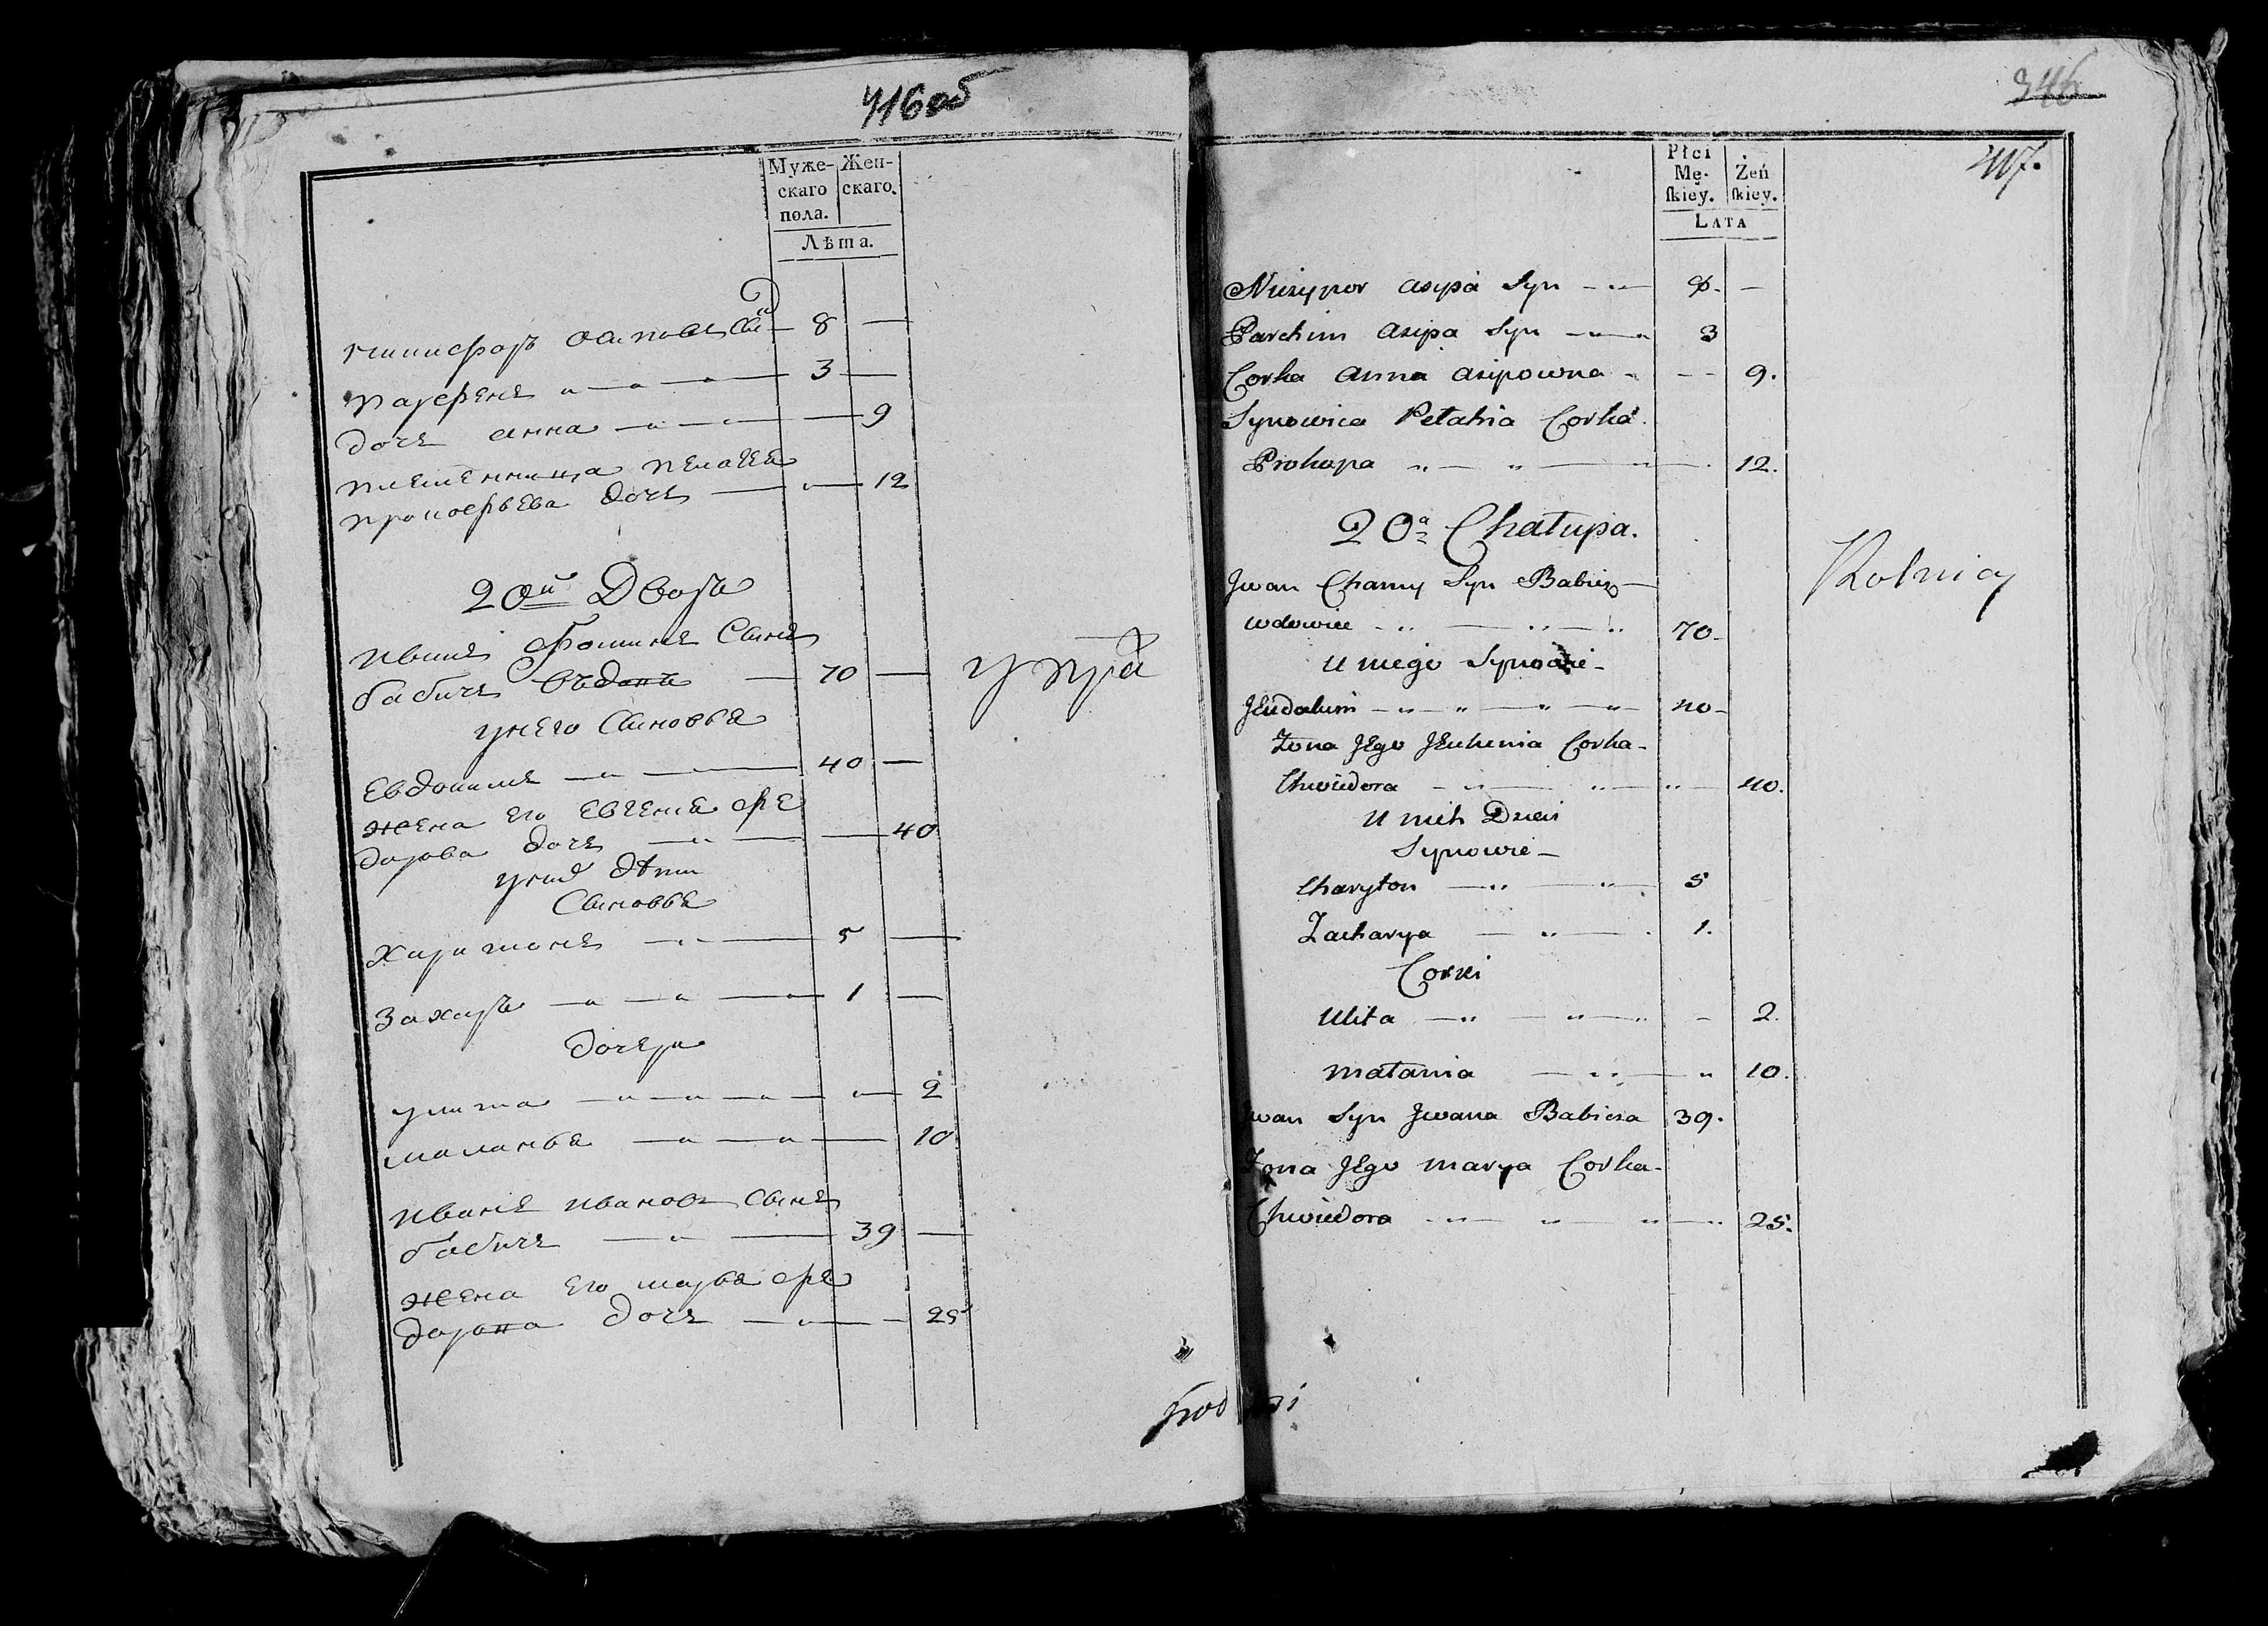 416 об
Муже-
скаго
пола.
Жен-
скаго.
Лѣта.
никифоръ осиповъ сы — 8 —
парфенъ — 3 —
дочь анна — 9
племенница пелагея
прокофьева дочь — 12
20й Дворъ
иванъ фоминъ сынъ
бабичь въдовъ — 70 —
у него сыновья
Евдокимъ — 40 —
жена его Евгенія фе
дорова дочь — 40
у них дѣти
сыновья
харитонъ — 5 —
захаръ — 1 —
дочери
улита — 2
маланья — 10
иванъ ивановъ сынъ
бабичь — 39 —
жена его марья фе
дорова дочь — 25
346
417.
Płci
Mę-
ſkiey.
Żeń
ſkiey.
LATA
Niczypor asypa Syn — 8. —
Parchim asipa Syn — 3
Corka anna asipowna — 9.
Synowica Pelahia Corka
Prokopa — 12.
20a Chałupa.
Jwan Chamy Syn Babicz —
wdowiec — 70 —
U niego Synowie —
JEudokim — 40 —
Zona JEgo JEuhenia Corka —
Chwiedora — 40.
U nich Dzieci
Synowie —
Charyton — 5
Zacharya — 1.
Corki
Ulita — 2.
Małania — 10.
Jwan Syn Jwana Babicza 39.
Zona JEgo Marya Corka —
Chwiedora — 25.
Rolnicy